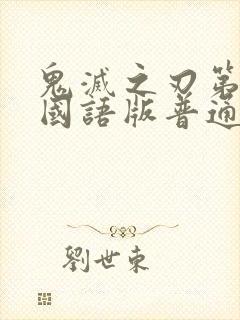 鬼滅之刃第
國語版普通
劉世東